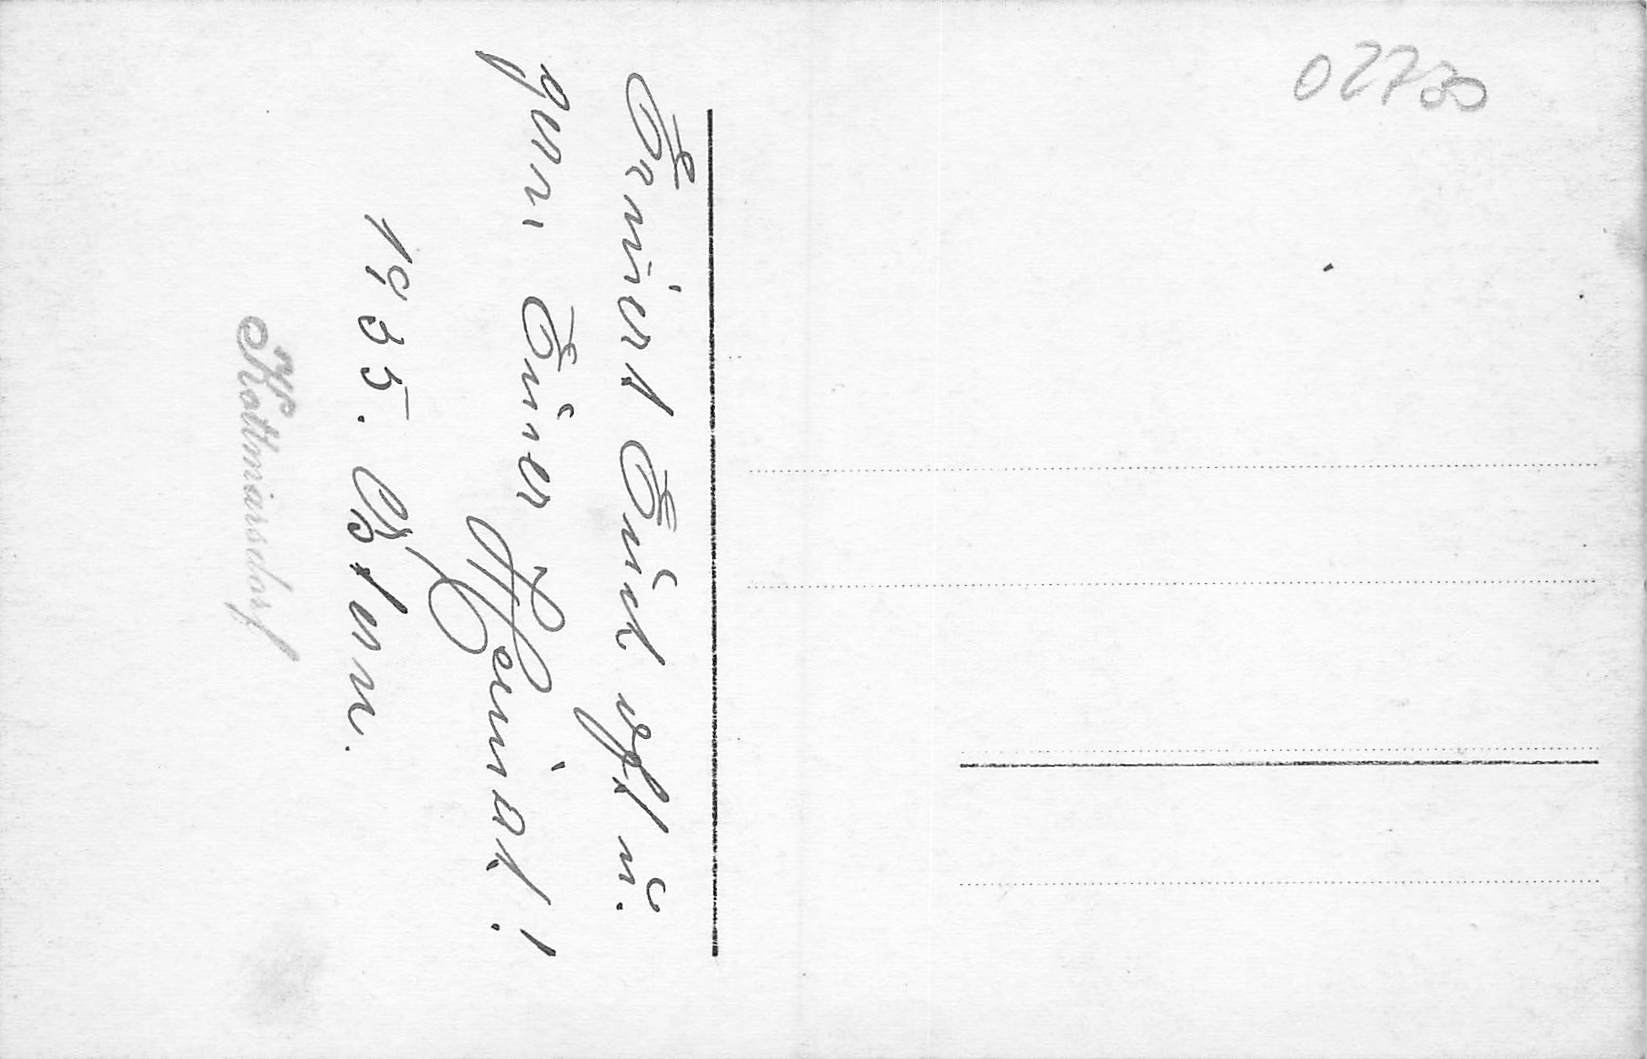 02730
Erinert Euch oft u.
gern, Eurer Heimat!
1935. Ostern.
Kottmarsdorf